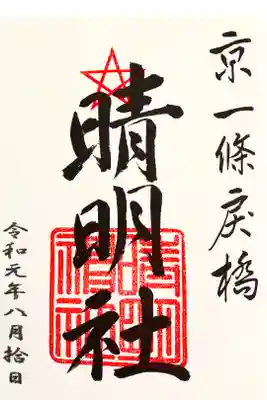 京一條戻橋
晴明社
令和元年八月拾日